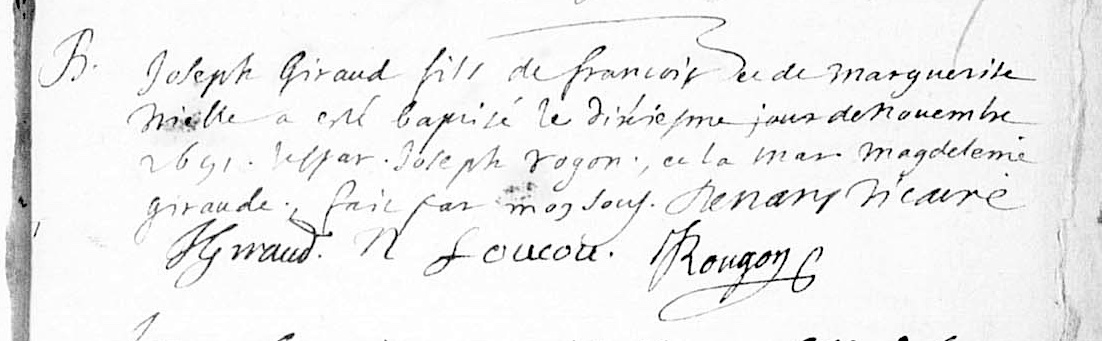 B. Joseph Giraud fils de francois et de marguerite
Mielle a esté baptisé le dixiesme jour de Novembre
1691. le par. Joseph rogon., et la mar. magdeleine
giraude., fait par moy sous. vicaire
Giraud. N Rougon